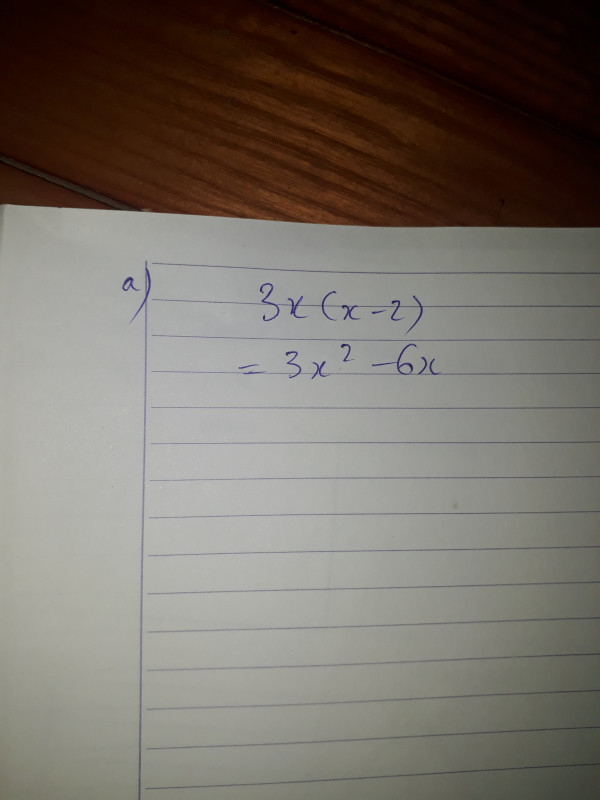 a) 3x(x-2)
= 3x² -6x